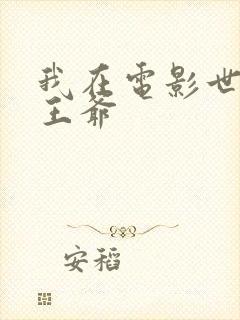 我在電影世
王爺
安稻